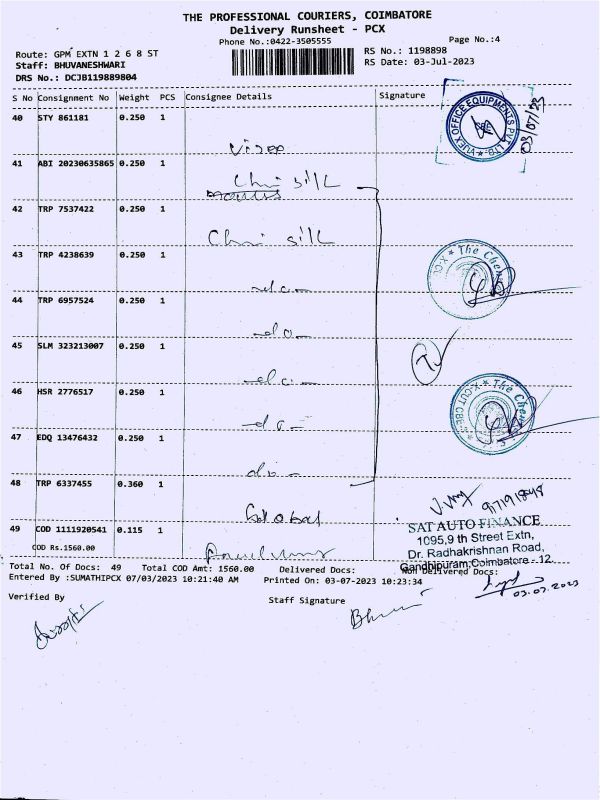 THE PROFESSIONAL COURIERS, COIMBATORE
Delivery Runsheet - PCX
Phone No.:0422-3505555
Page No.:4
Route: GPM EXTN 1 2 6 8 ST
RS No.: 1198898
Staff: BHUVANESHWARI
RS Date: 03-Jul-2023
DRS No.: DCJB119889804
S No Consignment No Weight PCS Consignee Details Signature
40 STY 861181 0.250 1
VIJEX OFFICE EQUIPMENTS PVT. LTD.
03/07/23
41 ABI 20230635865 0.250 1
silk
42 TRP 7537422 0.250 1
silk
43 TRP 4238639 0.250 1
The
44 TRP 6957524 0.250 1
do
45 SLM 323213007 0.250 1
46 HSR 2776517 0.250 1
The
do
47 EDQ 13476432 0.250 1
do
48 TRP 6337455 0.360 1
Global
49 COD 1111920541 0.115 1
COD Rs.1560.00
SAT AUTO FINANCE
1095,9 th Street Extn,
Dr. Radhakrishnan Road,
Gandhipuram,Coimbatore - 12.
Total No. Of Docs: 49 Total COD Amt: 1560.00 Delivered Docs: Non Delivered Docs:
Entered By :SUMATHIPCX 07/03/2023 10:21:40 AM Printed On: 03-07-2023 10:23:34
03.07.2023
Verified By
Staff Signature